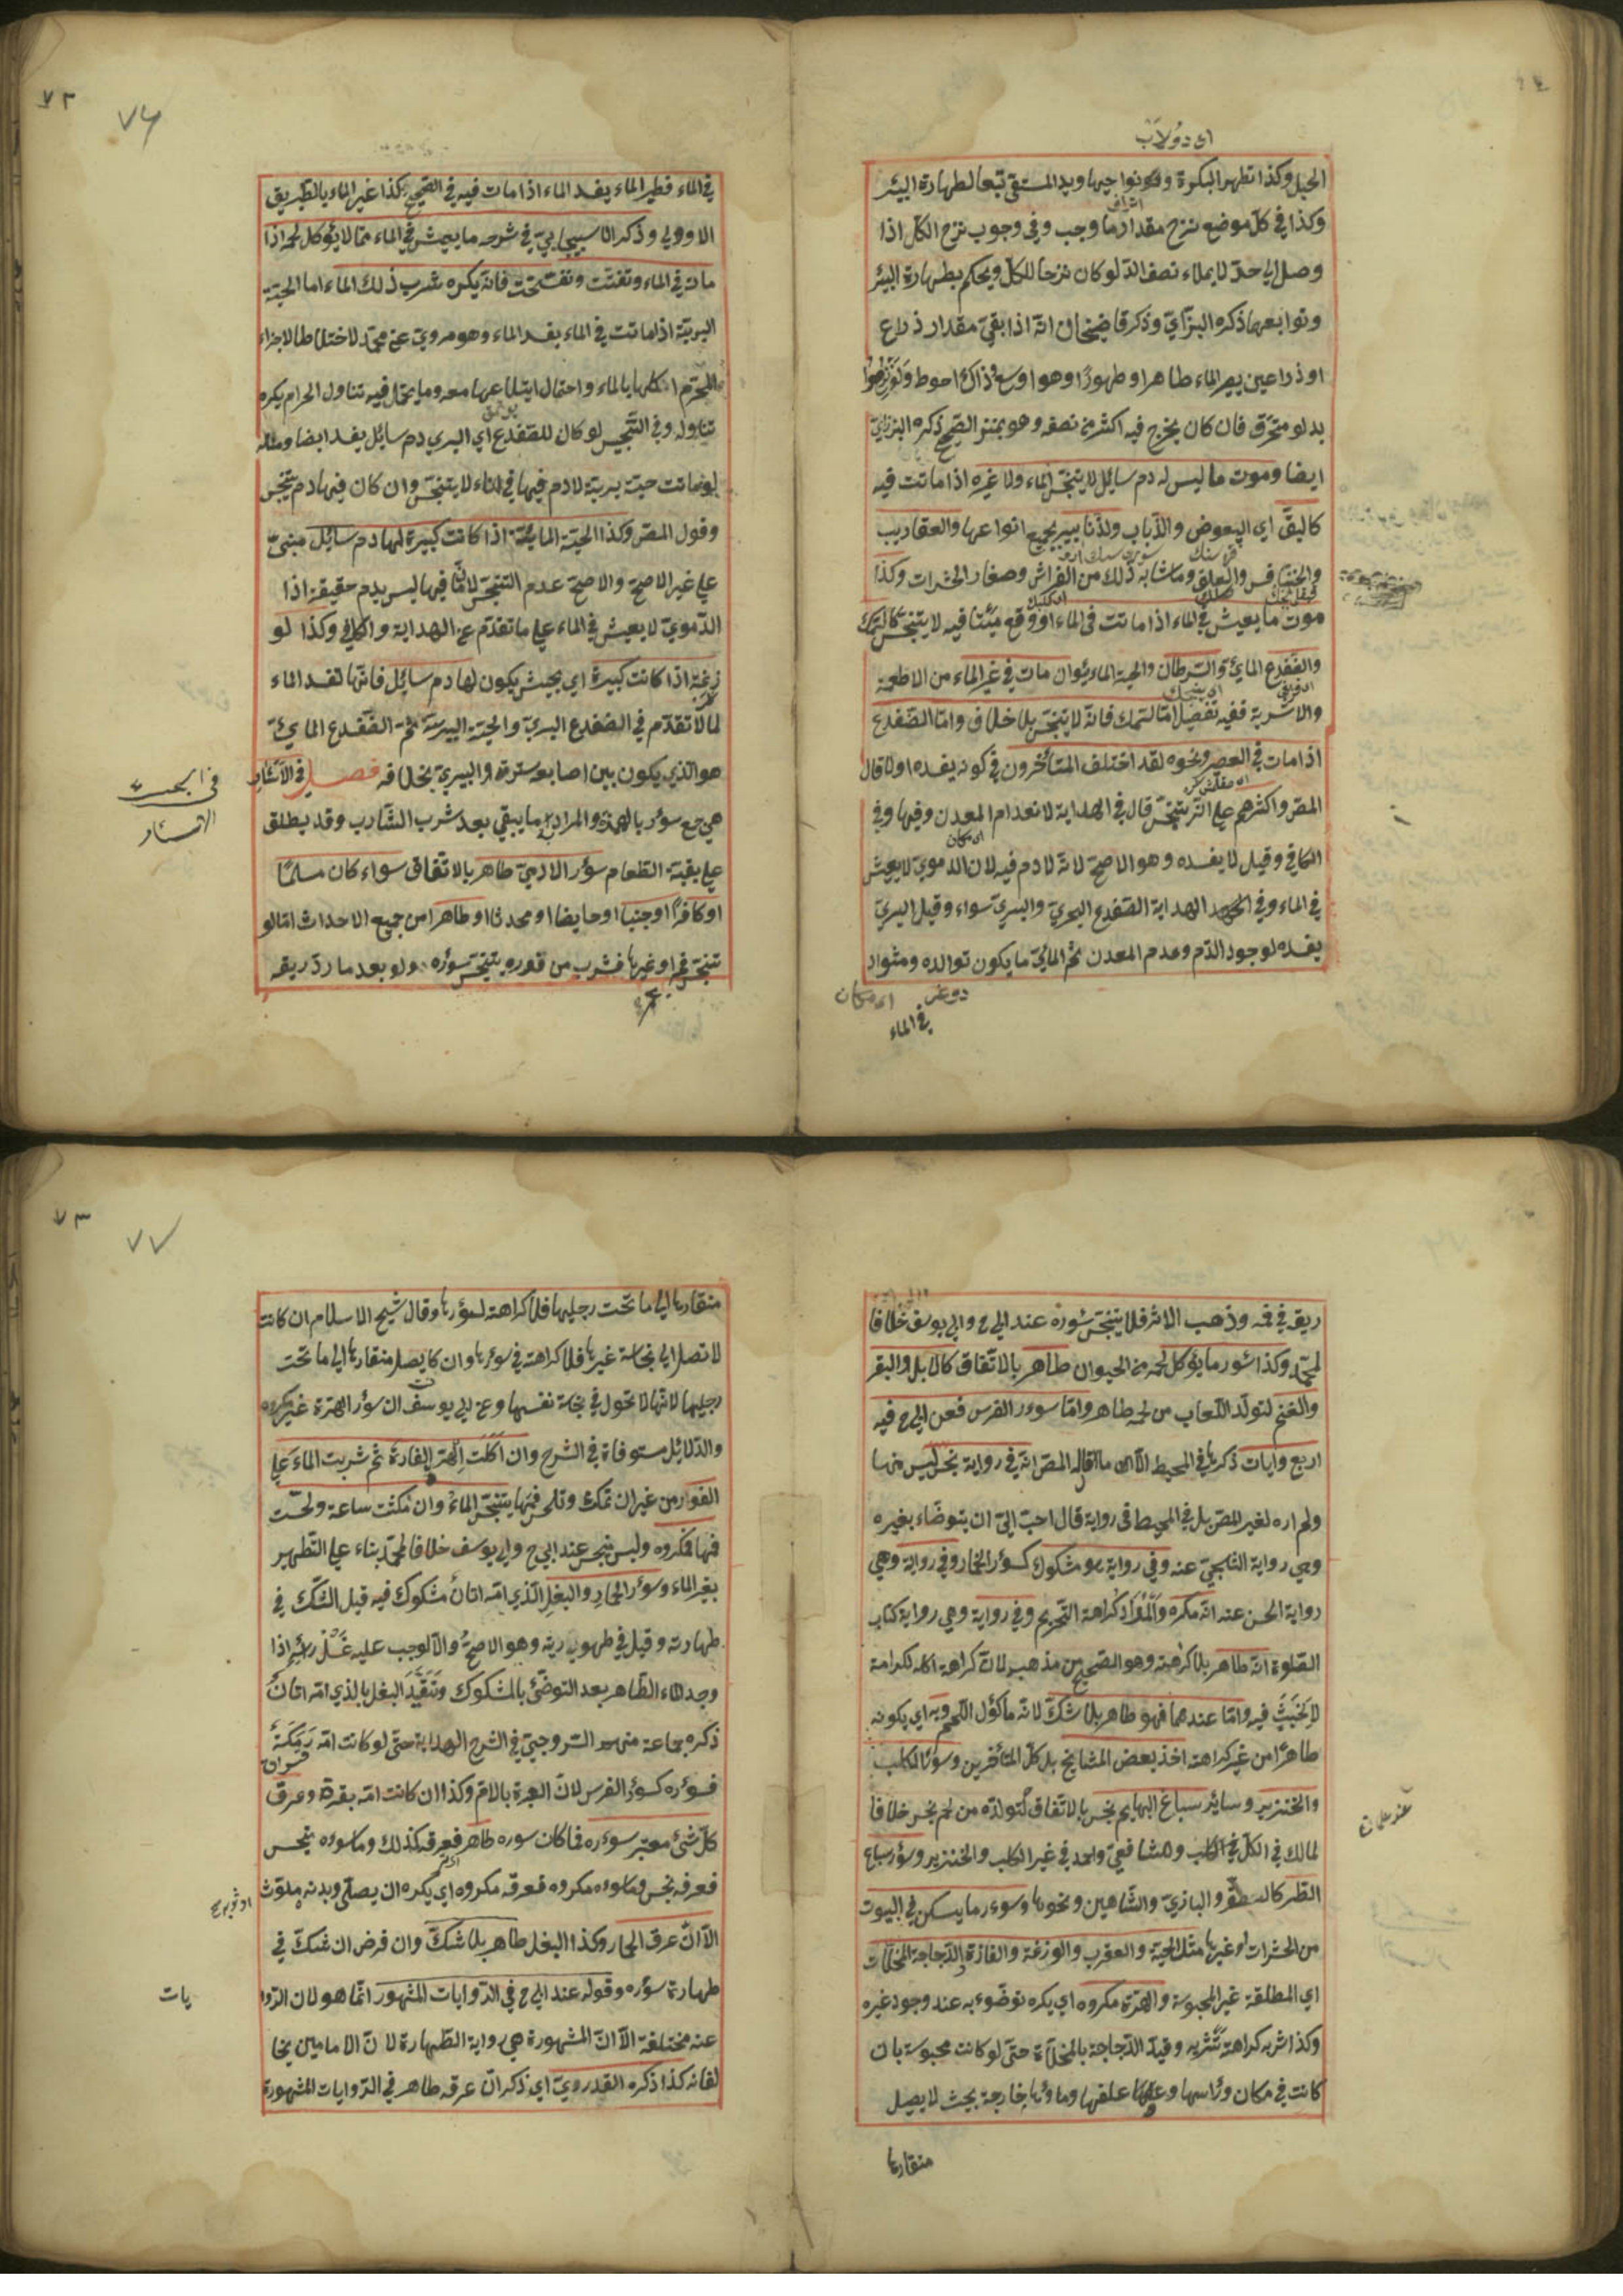 اى دولاب
الحبل وكذا تطهر البكرة ونواحيها ويد المستقى تبعا لطهارة البئر
وكذا في كلّ موضع نزح مقدار ما وجب وفى وجوب نزح الكل اذا
وصل الى حدّ لا يملاء نصف الدّلو كان نزحا للكلّ ويحكم بطهارة البئر
وتوابعها ذكره البزّازيّ وذكر قاضيخان انّه اذا بقى مقدار ذراع
او ذراعين يصير الماء طاهرا وطهورًا وهو اوسع وذاك احوط ولو نزحوا
بدلو متخرّق فان كان يخرج فيه اكثر من نصفه وهو يمنز الصّحيح ذكره البزازيّ
ايضا وموت ما ليس له دم سايل لا ينجّس الماء ولا غيره اذا مات فيه
كالبقّ اي البعوض والذّباب والزّنابير بجميع انواعها والعقارب
والخنافس والعلق وما شابه ذلك من الفراش وصغار الحشرات وكذا
موت ما يعيش في الماء اذا مات فى الماء او وقع ميّتا فيه لا يتنجّس كالسّمك
والضّفدع المائىّ والسّرطان والحية المائية وان مات في غير الماء من الاطعمة
والاشربة ففيه تفصيل امّا السّمك فانّه لا ينجّس بلا خلاف وامّا الضّفدع
اذا مات في العصير ونحوه لقد اختلف المتأخرون في كونه يفسده اولا قال
المص واكثرهم على انّه يتنجّس قال في الهداية لانعدام المعدن وفيها وفي
الكافي وقيل لا يفسده وهو الاصحّ لانّه لا دم فيه لان الدموى لا يعيش
في الماء وفي الهداية الضّفدع البحريّ والبرىّ سواء وقيل البريّ
يفسده لوجود الدّم وعدم المعدن ثمّ المائيّ ما يكون توالده ومثواه
في الماء
٧٦
في الماء فطير الماء يفسد الماء اذا مات فيه في الصّحيح وكذا غير الماء بالطّريق
الاولى وذكر الاسبيجابيّ في شرحه ما يعيش في الماء ممّا لا يؤكل لحمه اذا
مات في الماء وتفتّت وتفسّخت فانّه يكره شرب ذلك الماء امّا الحيّة
البريّة اذا ماتت في الماء يفسد الماء وهو مروىّ عن محمّد لاختلاط الاجزاء
المحرّم اكلها بالماء واحتمال ابتلاعها معه وما يحتمل فيه تناول الحرام يكره
تناوله وفي التّجنيس لو كان للضفدع اي البري دم سايل يفسد ايضا ومثله
لو ماتت حية بريّة لا دم فيها في اناء لا يتنجّس وان كان فيها دم يتنجّس
وقول المص وكذا الحيّة المائيّة اذا كانت كبيرة لها دم سائل مبنى
على غير الاصحّ والاصحّ عدم التنجّس لانّ ما فيها ليس بدم حقيقة اذا
الدّمويّ لا يعيش في الماء على ما تقدّم عن الهداية والكافي وكذا لو
وزغة اذا كانت كبيرة اي بحيث يكون لها دم سايل فانّها تفسد الماء
لما تقدّم في الضفدع البريّ والحيّة البريّة ثمّ الضّفدع المائىّ
هو الّذي يكون بين اصابعه سترة والبريّ بخلافه فصـل في الآسار
هي جمع سؤر بالهمزة والمراد به ما يبقى بعد شرب الشّارب وقد يطلق
على بقيّة الطعام سؤر الادميّ طاهر بالاتّفاق سواء كان مسلمًا
او كافرًا او جنبا او حايضا او محدثا او طاهرا من جميع الاحداث امّا لو
تنجّس فمه او غيرها فشرب من فوره يتنجّس سؤره ولو بعد ما ردّ ريقه
ريقه في فمه وذهب الاثر فلا يتنجّس سؤره عند ابي ح وابي يوسف خلافا
لمحمّد وكذا سؤر ما يؤكل لحمه من الحيوان طاهر بالاتّفاق كالابل والبقر
والغنم لتولّد اللّعاب من لحمه طاهر وامّا سوءر الفرس فعن ابي ح فيه
اربع روايات ذكرها في المحيط الّا ان ما قاله المص انّه في رواية نجس ليس منها
ولم اره لغير المص بل في المحيط في رواية قال احبّ الىّ ان يتوضّاء بغيره
وهي رواية البلخيّ عنه وفي رواية هو مشكوك كسؤر الحمار وفي رواية وهي
رواية الحسن عنه انّه مكره والمراد كراهة التّحريم وفي رواية وهي رواية كتاب
الصّلوة انّه طاهر بلا كراهة وهو الصّحيح من مذهبه لانّ كراهة اكله للكرامة
لا لخبث فيه وامّا عندهما فهو طاهر بلا شكّ لانّه مأكول اللّحم وبه اي بكونه
طاهرًا من غير كراهة اخذ بعض المشايخ بل كلّ المتأخرين وسؤر الكلب
والخنزير وسائر سباع البهايم نجس بالاتّفاق لتولّده من لحم نجس خلافا
لمالك في الكلّ في الكلب والشافعيّ واحمد في غير الكلب والخنزير وسؤر سباع
الطّير كالصّقر والبازيّ والشّاهين ونحوها وسوءر ما يسكن في البيوت
من الحشرات او غيرها مثل الحيّة والعقرب والوزغة والفارة والدّجاجة المخلّات
اي المطلقة غير المحبوسة والهرّة مكروه اي يكره توضّوء به عند وجود غيره
وكذا شربه كراهة تنزيه وقيّد الدّجاجة بالمخلّاة حتّى لو كانت محبوسة بان
كانت في مكان ورأسها وعلفها وماؤها خارجة بحيث لا يصل
منقارها
٧٧
منقارها الى ما تحت رجليها فلا كراهة لسؤرها وقال شيخ الاسلام ان كانت
لا تصل الى نجاسة غيرها فلا كراهة في سؤرها وان كان يصل منقارها الى ما تحت
رجليها لانّها لا تجول في نجاسة نفسها وعن ابي يوسف ان سؤر الهرّة غير مكروه
والدّلائل مستوفاة في الشرح وان اكلت الهرّة الفارة ثمّ شربت الماء على
الفور من غير ان تمكث وتلحس فمها يتنجّس الماء وان مكثت ساعة ولحست
فمها فمكروه وليس بنجس عند ابي ح وابي يوسف خلافا لمحمّد بناء على التّطهير
بغير الماء وسؤر الحمار والبغل الّذي امّه اتان مشكوك فيه قيل الشّكّ في
طهارته وقيل في طهوريته وهو الاصحّ والّا لوجب عليه غسل رأسه اذا
وجد الماء الطّاهر بعد التوضّئ بالمشكوك وتقيّد البغل بالذي امّه اتان
ذكره جماعة منهم السّروجيّ في الشرح الهداية حتى لو كانت امّه رمكة
فسؤره كسؤر الفرس لانّ العبرة بالامّ وكذا ان كانت امّه بقرة وعرق
كلّ شئ معتبر سوءره فما كان سوره طاهر فعرقه كذلك وما سوءره نجس
فعرقه نجس وما سوءه مكروه فعرقه مكروه اي يكره ان يصلّى وبدنه ملوّث
الّا انّ عرق الحمار وكذا البغل طاهر بلا شكّ وان فرض ان شكّ في
طهارة سؤره وقوله عند ابي ح في الرّوايات المشهور انّما هو لان الرّوا
يات
عنه مختلفة الّا انّ المشهورة هي رواية الطّهارة لا انّ الامامين يخا
لفانه كذا ذكره القدوريّ اي ذكر انّ عرقه طاهر في الرّوايات المشهورة